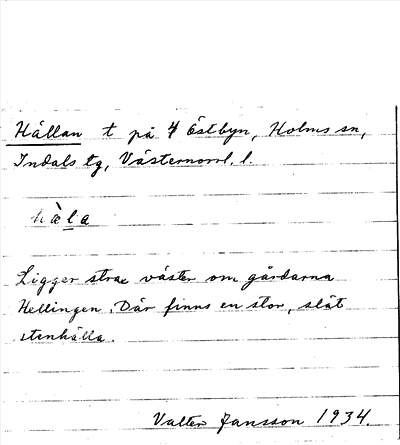 Hällan t på 4 Östbyn, Holms sn,
Indals tg, Västernorrl. l.
hæ̀la
Ligger strax väster om gårdarna
Hellingen. Där finns en stor, slät
stenhälla.
Valter Jansson 1934.